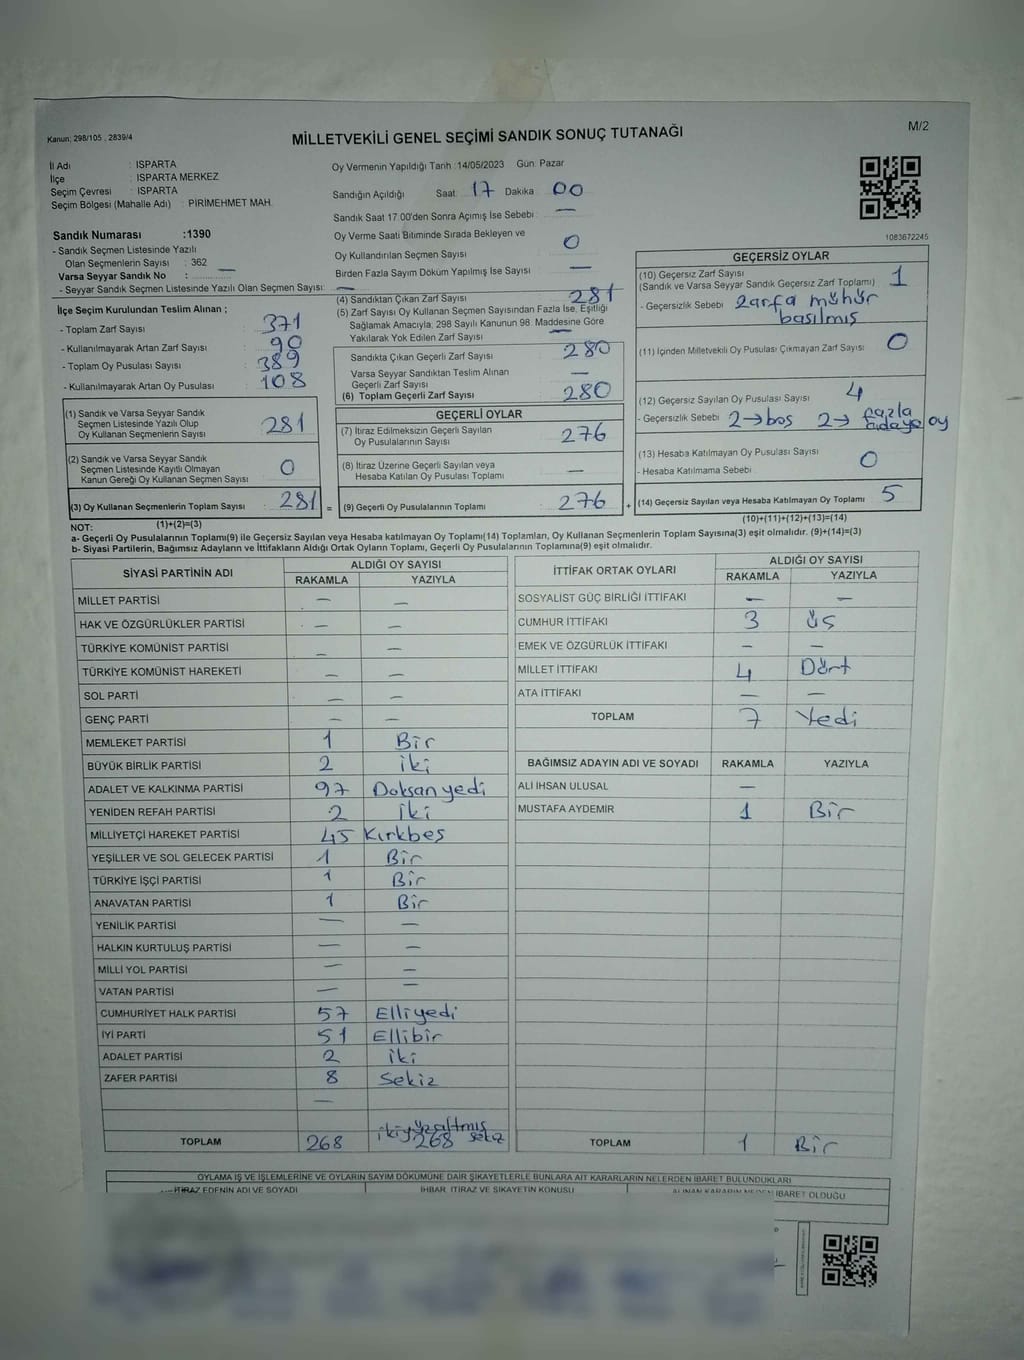 Kanun; 298/105 , 2839/4
MİLLETVEKİLİ GENEL SEÇİMİ SANDIK SONUÇ TUTANAĞI
M/2
İl Adı : ISPARTA
İlçe : ISPARTA MERKEZ
Seçim Çevresi : ISPARTA
Seçim Bölgesi (Mahalle Adı) : PİRİMEHMET MAH.
Sandık Numarası :1390
- Sandık Seçmen Listesinde Yazılı
Olan Seçmenlerin Sayısı : 362
Varsa Seyyar Sandık No : —
- Seyyar Sandık Seçmen Listesinde Yazılı Olan Seçmen Sayısı: —
Oy Vermenin Yapıldığı Tarih :14/05/2023 Gün: Pazar
Sandığın Açıldığı Saat: 17 Dakika 00
Sandık Saat 17.00'den Sonra Açımış İse Sebebi : —
Oy Verme Saati Bitiminde Sırada Bekleyen ve
Oy Kullandırılan Seçmen Sayısı : 0
Birden Fazla Sayım Döküm Yapılmış İse Sayısı : —
1083672245
İlçe Seçim Kurulundan Teslim Alınan ;
- Toplam Zarf Sayısı : 371
- Kullanılmayarak Artan Zarf Sayısı : 90
- Toplam Oy Pusulası Sayısı : 389
- Kullanılmayarak Artan Oy Pusulası : 108
(1) Sandık ve Varsa Seyyar Sandık
Seçmen Listesinde Yazılı Olup
Oy Kullanan Seçmenlerin Sayısı : 281
(2) Sandık ve Varsa Seyyar Sandık
Seçmen Listesinde Kayıtlı Olmayan
Kanun Gereği Oy Kullanan Seçmen Sayısı : 0
(3) Oy Kullanan Seçmenlerin Toplam Sayısı : 281 =
(4) Sandıktan Çıkan Zarf Sayısı : 281
(5) Zarf Sayısı Oy Kullanan Seçmen Sayısından Fazla İse, Eşitliği
Sağlamak Amacıyla, 298 Sayılı Kanunun 98. Maddesine Göre
Yakılarak Yok Edilen Zarf Sayısı : —
Sandıkta Çıkan Geçerli Zarf Sayısı : 280
Varsa Seyyar Sandıktan Teslim Alınan
Geçerli Zarf Sayısı : —
(6) Toplam Geçerli Zarf Sayısı : 280
GEÇERLİ OYLAR
(7) İtiraz Edilmeksizin Geçerli Sayılan
Oy Pusulalarının Sayısı : 276
(8) İtiraz Üzerine Geçerli Sayılan veya
Hesaba Katılan Oy Pusulası Toplamı : —
(9) Geçerli Oy Pusulalarının Toplamı : 276 +
GEÇERSİZ OYLAR
(10) Geçersiz Zarf Sayısı
(Sandık ve Varsa Seyyar Sandık Geçersiz Zarf Toplamı) : 1
- Geçersizlik Sebebi : zarfa mühür
basılmış
(11) İçinden Milletvekili Oy Pusulası Çıkmayan Zarf Sayısı : 0
(12) Geçersiz Sayılan Oy Pusulası Sayısı : 4
- Geçersizlik Sebebi : 2→boş 2→ fazla
adaya oy
(13) Hesaba Katılmayan Oy Pusulası Sayısı : 0
- Hesaba Katılmama Sebebi :
(14) Geçersiz Sayılan veya Hesaba Katılmayan Oy Toplamı : 5
NOT: (1)+(2)=(3)
(10)+(11)+(12)+(13)=(14)
a- Geçerli Oy Pusulalarının Toplamı(9) ile Geçersiz Sayılan veya Hesaba katılmayan Oy Toplamı(14) Toplamları, Oy Kullanan Seçmenlerin Toplam Sayısına(3) eşit olmalıdır. (9)+(14)=(3)
b- Siyasi Partilerin, Bağımsız Adayların ve İttifakların Aldığı Ortak Oyların Toplamı, Geçerli Oy Pusulalarının Toplamına(9) eşit olmalıdır.
SİYASİ PARTİNİN ADI ALDIĞI OY SAYISI
RAKAMLA YAZIYLA
MİLLET PARTİSİ — —
HAK VE ÖZGÜRLÜKLER PARTİSİ — —
TÜRKİYE KOMÜNİST PARTİSİ — —
TÜRKİYE KOMÜNİST HAREKETİ — —
SOL PARTİ — —
GENÇ PARTİ — —
MEMLEKET PARTİSİ 1 Bir
BÜYÜK BİRLİK PARTİSİ 2 iki
ADALET VE KALKINMA PARTİSİ 97 Doksan yedi
YENİDEN REFAH PARTİSİ 2 iki
MİLLİYETÇİ HAREKET PARTİSİ 45 Kırkbeş
YEŞİLLER VE SOL GELECEK PARTİSİ 1 Bir
TÜRKİYE İŞÇİ PARTİSİ 1 Bir
ANAVATAN PARTİSİ 1 Bir
YENİLİK PARTİSİ — —
HALKIN KURTULUŞ PARTİSİ — —
MİLLİ YOL PARTİSİ — —
VATAN PARTİSİ — —
CUMHURİYET HALK PARTİSİ 57 Elliyedi
İYİ PARTİ 51 Ellibir
ADALET PARTİSİ 2 iki
ZAFER PARTİSİ 8 Sekiz
—
TOPLAM 268 ikiyüzaltmış sekiz 268
İTTİFAK ORTAK OYLARI ALDIĞI OY SAYISI
RAKAMLA YAZIYLA
SOSYALİST GÜÇ BİRLİĞİ İTTİFAKI — —
CUMHUR İTTİFAKI 3 üç
EMEK VE ÖZGÜRLÜK İTTİFAKI — —
MİLLET İTTİFAKI 4 Dört
ATA İTTİFAKI — —
TOPLAM 7 Yedi
BAĞIMSIZ ADAYIN ADI VE SOYADI RAKAMLA YAZIYLA
ALİ İHSAN ULUSAL —
MUSTAFA AYDEMİR 1 Bir
TOPLAM 1 Bir
OYLAMA İŞ VE İŞLEMLERİNE VE OYLARIN SAYIM DÖKÜMÜNE DAİR ŞİKAYETLERLE BUNLARA AİT KARARLARIN NELERDEN İBARET BULUNDUKLARI
İTİRAZ EDENİN ADI VE SOYADI İHBAR, İTİRAZ VE ŞİKAYETİN KONUSU ALINAN KARARIN NEDEN İBARET OLDUĞU